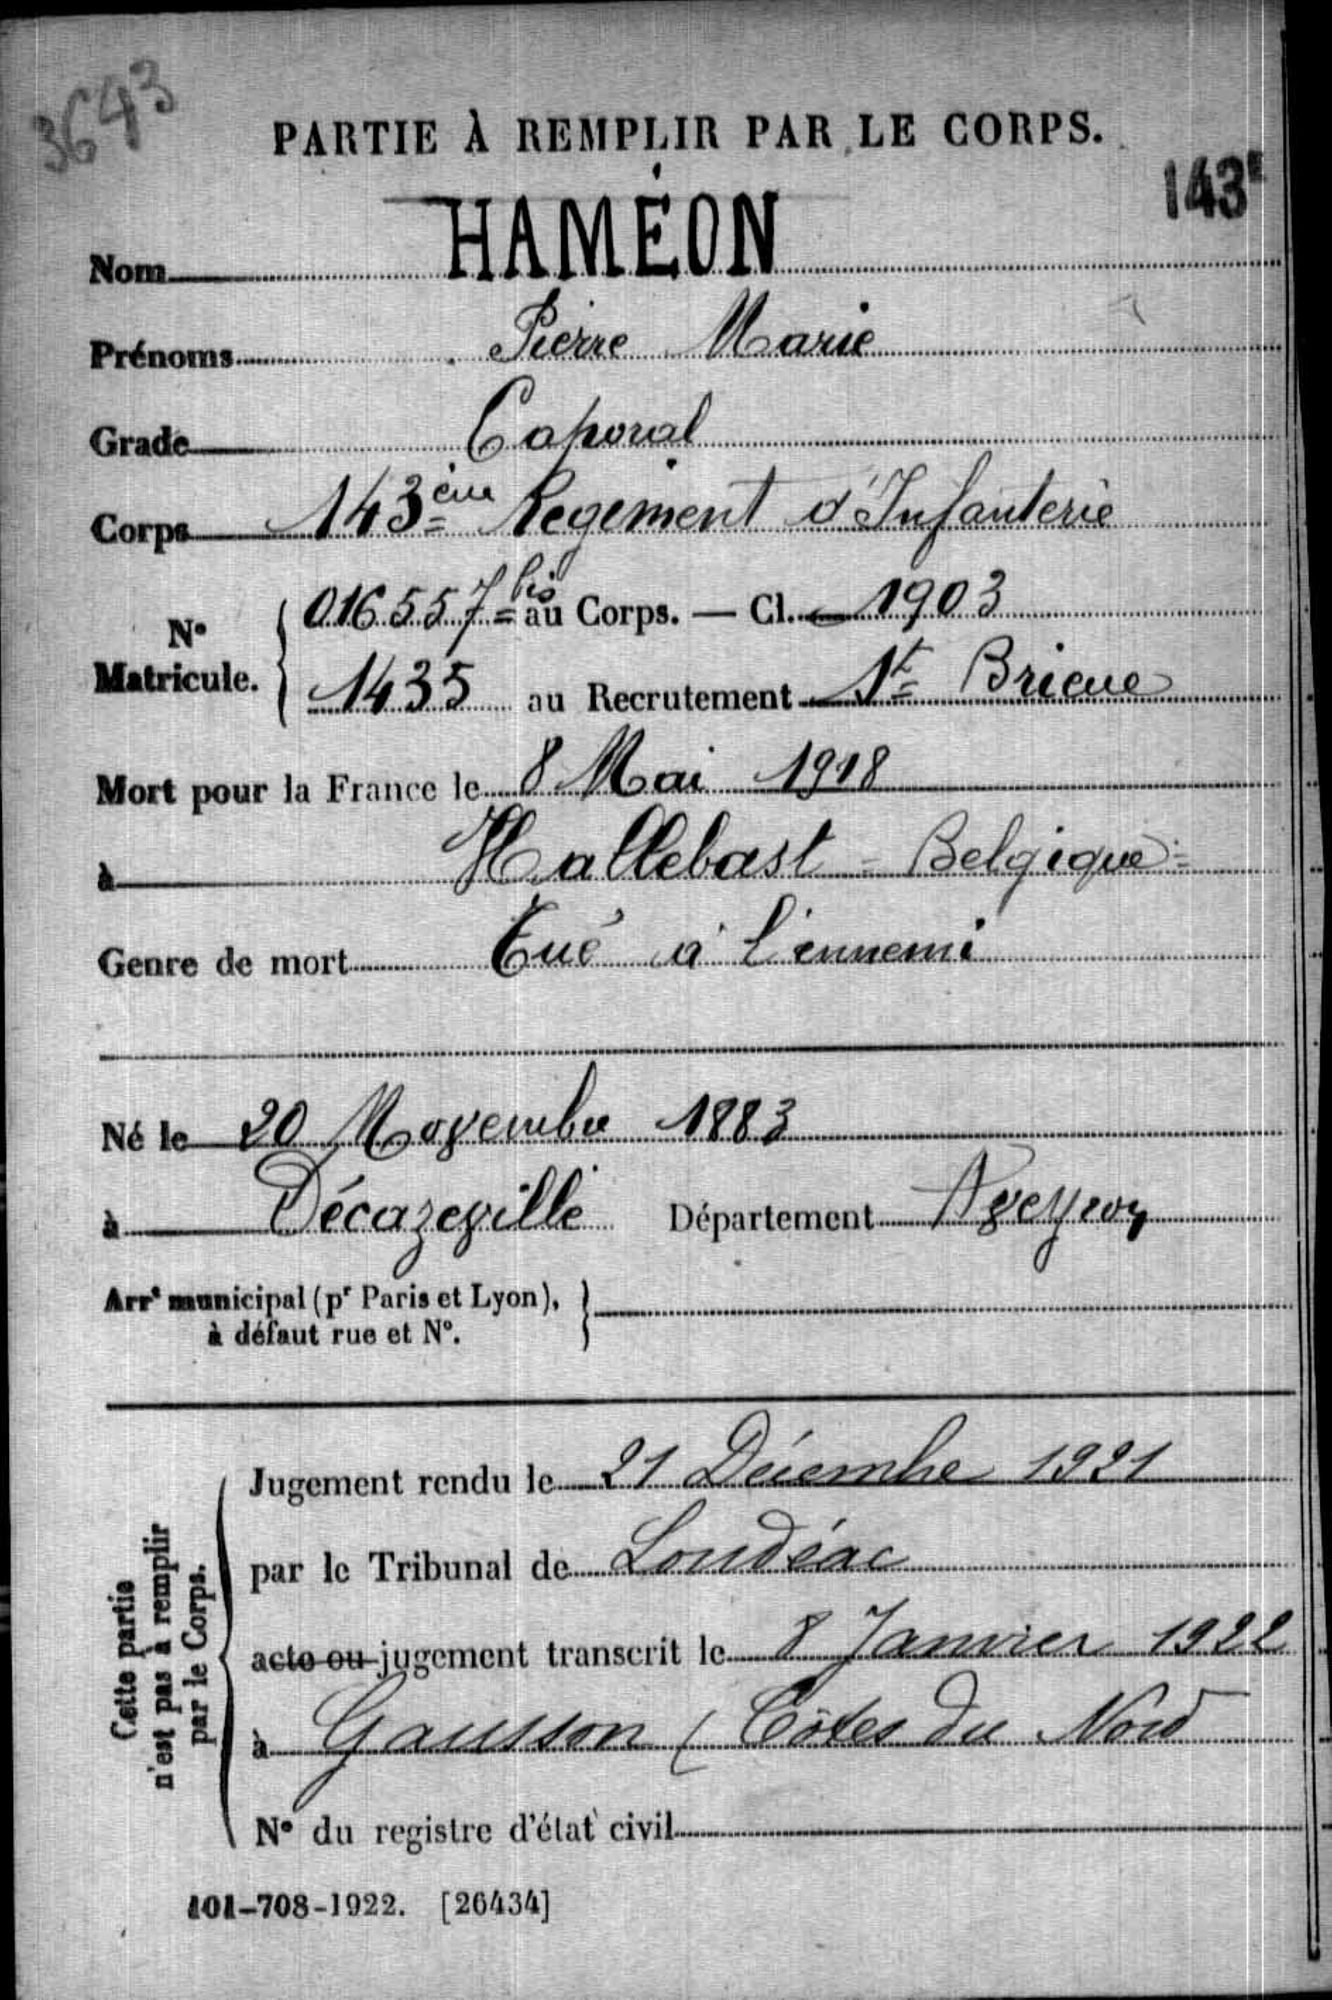 3643
PARTIE À REMPLIR PAR LE CORPS.
143E
Nom HAMÉON
Prénoms Pierre Marie
Grade Caporal
Corps 143ème Regiment d'Infanterie
N° Matricule. { 016557 bis au Corps. — Cl. 1903
1435 au Recrutement St Brieuc
Mort pour la France le 8 Mai 1918
à Hallebast - Belgique -
Genre de mort Tué à l'ennemi
Né le 20 Novembre 1883
à Décazeville Département Aveyron
Arrt municipal (pr Paris et Lyon),
à défaut rue et N°.
Cette partie
n'est pas à remplir
par le Corps.
Jugement rendu le 21 Décembre 1921
par le Tribunal de Loudéac
acte ou jugement transcrit le 8 Janvier 1922
à Gausson (Côtes du Nord
N° du registre d'état civil
101-708-1922. [26434]